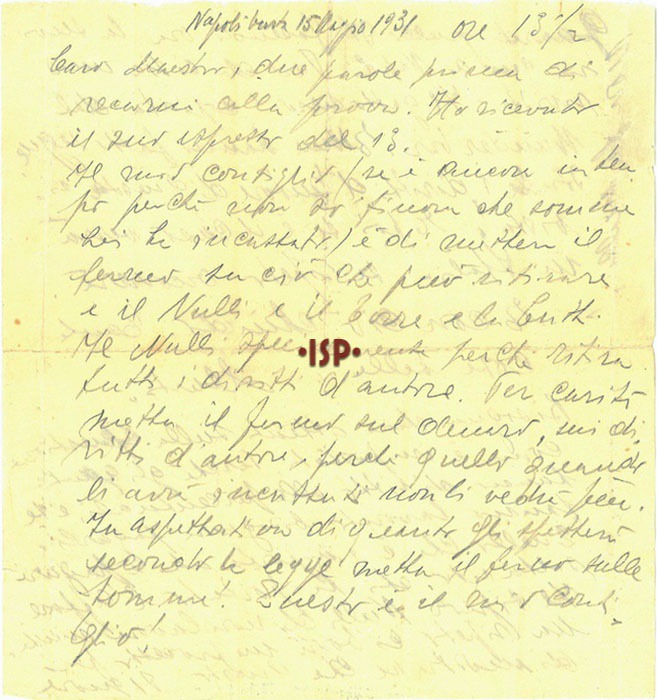 Napoli 15 Maggio 1931 ore 13 1/2
Caro Maestro, due parole prima di
recarmi alla prova. Ho ricevuto
il suo espresso del 13.
Il mio consiglio (se è ancora in tem
po perché non so finora che somme
Lei ha incassato) è di mettere il
fermo su ciò che può ritirare
e il Nulli e il e la
Il Nulli perché ritira
tutti i diritti d'autore. Per carità
metta il fermo sul denaro, sui di
ritti d'autore, perché quello quando
li avrà incassati non li vedrà più.
In aspettativa di quanto gli spetterà
secondo la legge metta il fermo sulle
somme! Questo è il mio consi-
glio!
•ISP•